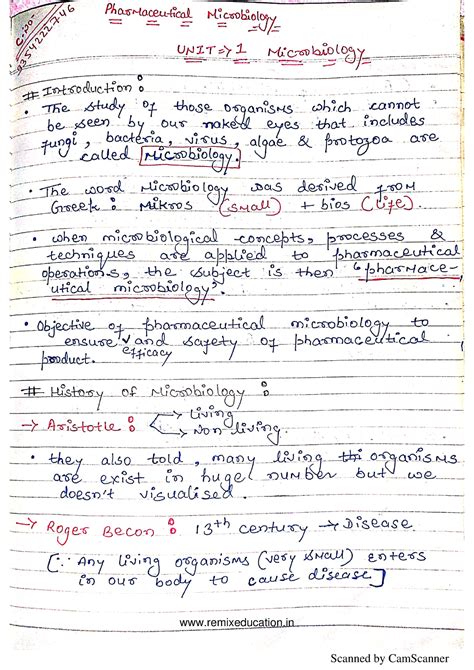 Pharmaceutical Microbiology
UNIT ⇒ 1 Microbiology
# Introduction :
• The study of those organisms which cannot
be seen by our naked eyes that includes
fungi, bacteria, virus, algae & protozoa are
called Microbiology.
• The word Microbiology was derived from
Greek : Mikros (small) + bios (life).
• when microbiological concepts, processes &
techniques are applied to pharmaceutical
operations, the subject is then "pharmace-
utical microbiology".
• Objective of pharmaceutical microbiology to
ensure efficacy and safety of pharmaceutical
product.
# History of Microbiology :
→ Aristotle : → living
→ Non living.
• they also told, many living organisms
are exist in huge number but we
doesn't visualised.
→ Roger Becon : 13th century → Disease.
[∵ Any living organisms (very small) enters
in our body to cause disease]
www.remixeducation.in
Scanned by CamScanner